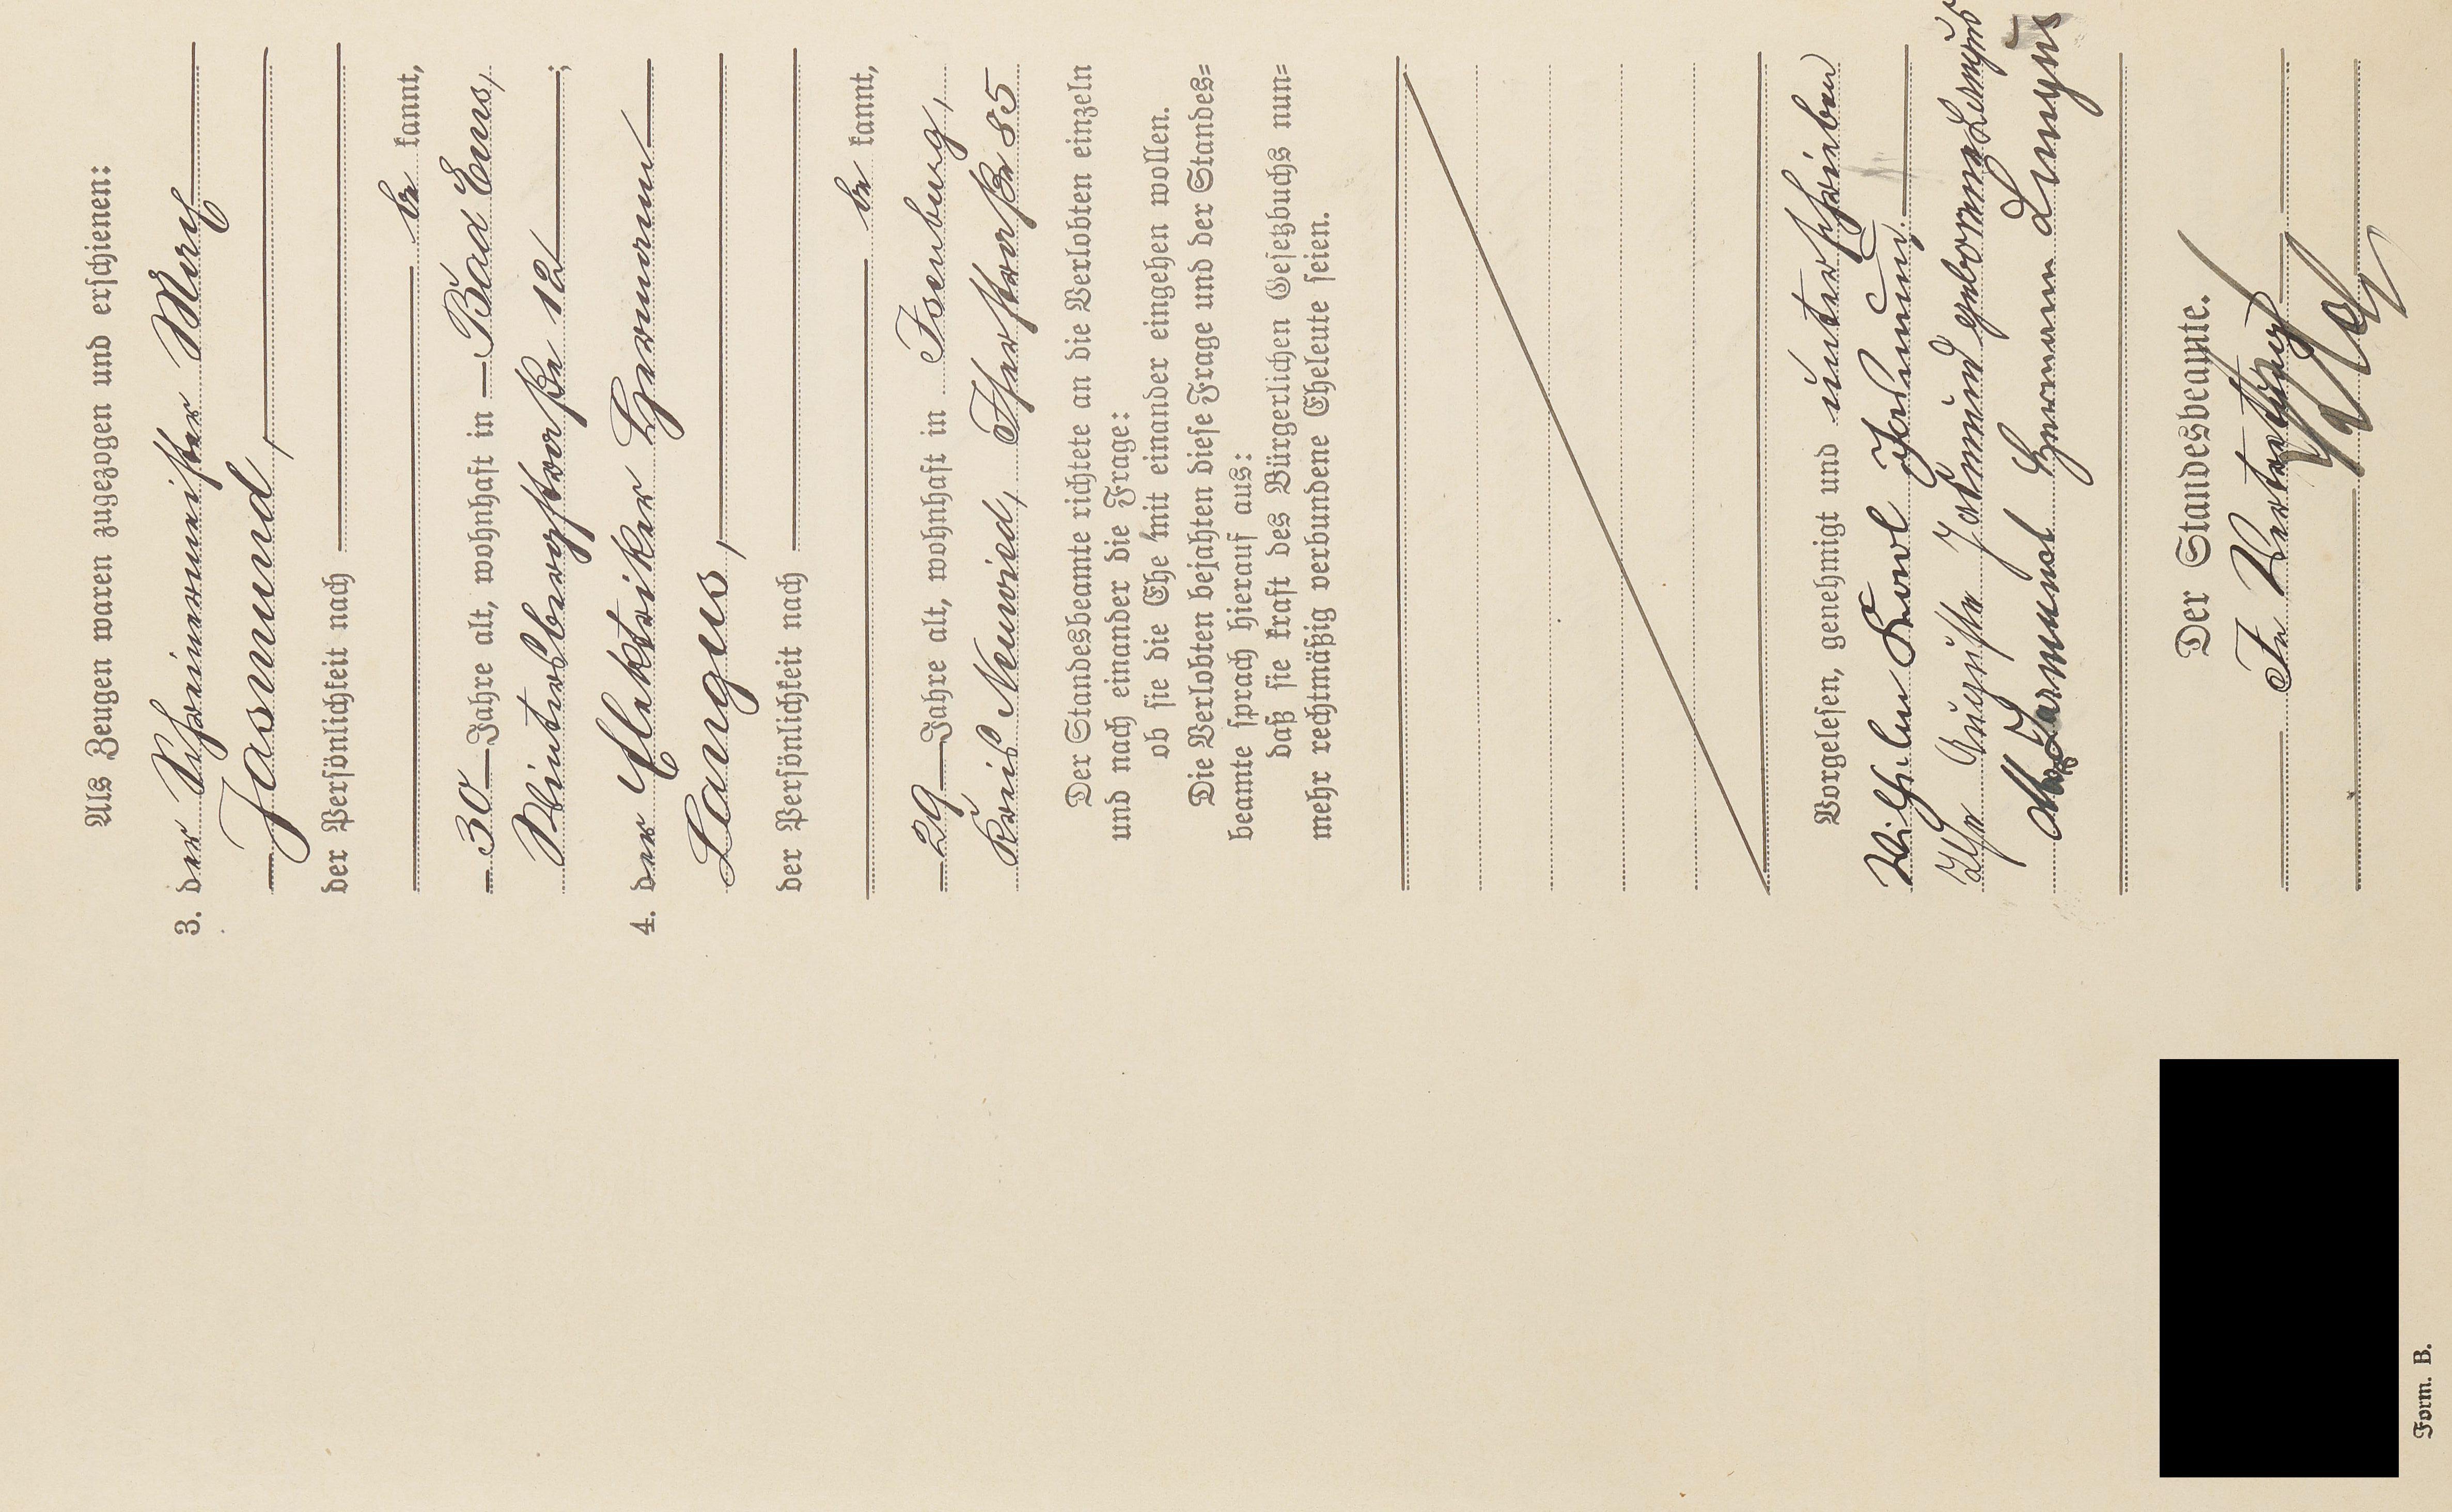 Als Zeugen waren zugezogen und erschienen:
3. der Schreinermeister
Jasmund,
der Persönlichkeit nach
be kannt,
30 Jahre alt, wohnhaft in Bad Ems,
Wintersbergstraße 12;
4. der Elektriker Hermann
Langus,
der Persönlichkeit nach
be kannt,
29 Jahre alt, wohnhaft in Isenburg,
Kreis Neuwied, 85
Der Standesbeamte richtete an die Verlobten einzeln
und nach einander die Frage:
ob sie die Ehe mit einander eingehen wollen.
Die Verlobten bejahten diese Frage und der Standes=
beamte sprach hierauf aus:
daß sie kraft des Bürgerlichen Gesetzbuchs nun=
mehr rechtmäßig verbundene Eheleute seien.
Vorgelesen, genehmigt und unterschrieben
Wilhelm Karl Jasmund
Auguste Jasmund geborene Langus
Jasmund Hermann Langus
Der Standesbeamte.
In Vertretung
Form. B.